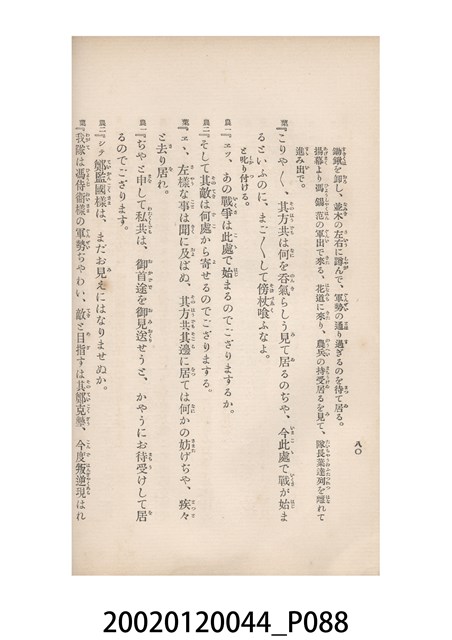 八〇
鋤鍬を卸し、並木の左右に蹲んで、軍勢の通り過ぎるのを待て居る。
揚幕より馮、錫、范の軍出で來る、花道に來り、農兵の待受居るを見て、隊長葉達列を離れて
進み出で。
葉『こりや〳〵、其方共は何を呑氣らしう見て居るのぢや、今此處で戰が始ま
るといふのに、まご〳〵して傍杖喰ふなよ。
と叱り付ける。
農一『エッ、あの戰爭は此處で始まるのでござりまするか。
農二『そして其敵は何處から寄せるのでござりまする。
葉『エヽ、左樣な事は聞に及ばぬ、其方共其邊に居ては何かの妨げぢや、疾々
と去り居れ。
農一『ぢやと申して私共は、御首途を御見送せうと、かやうにお待受けして居
るのでござります。
農二『シテ鄭監國樣は、まだお見えにはなりませぬか。
葉『我隊は馮侍衞樣の軍勢ぢやわい、敵と目指すは其鄭克𡒉、今度叛逆現はれ
20020120044_P088